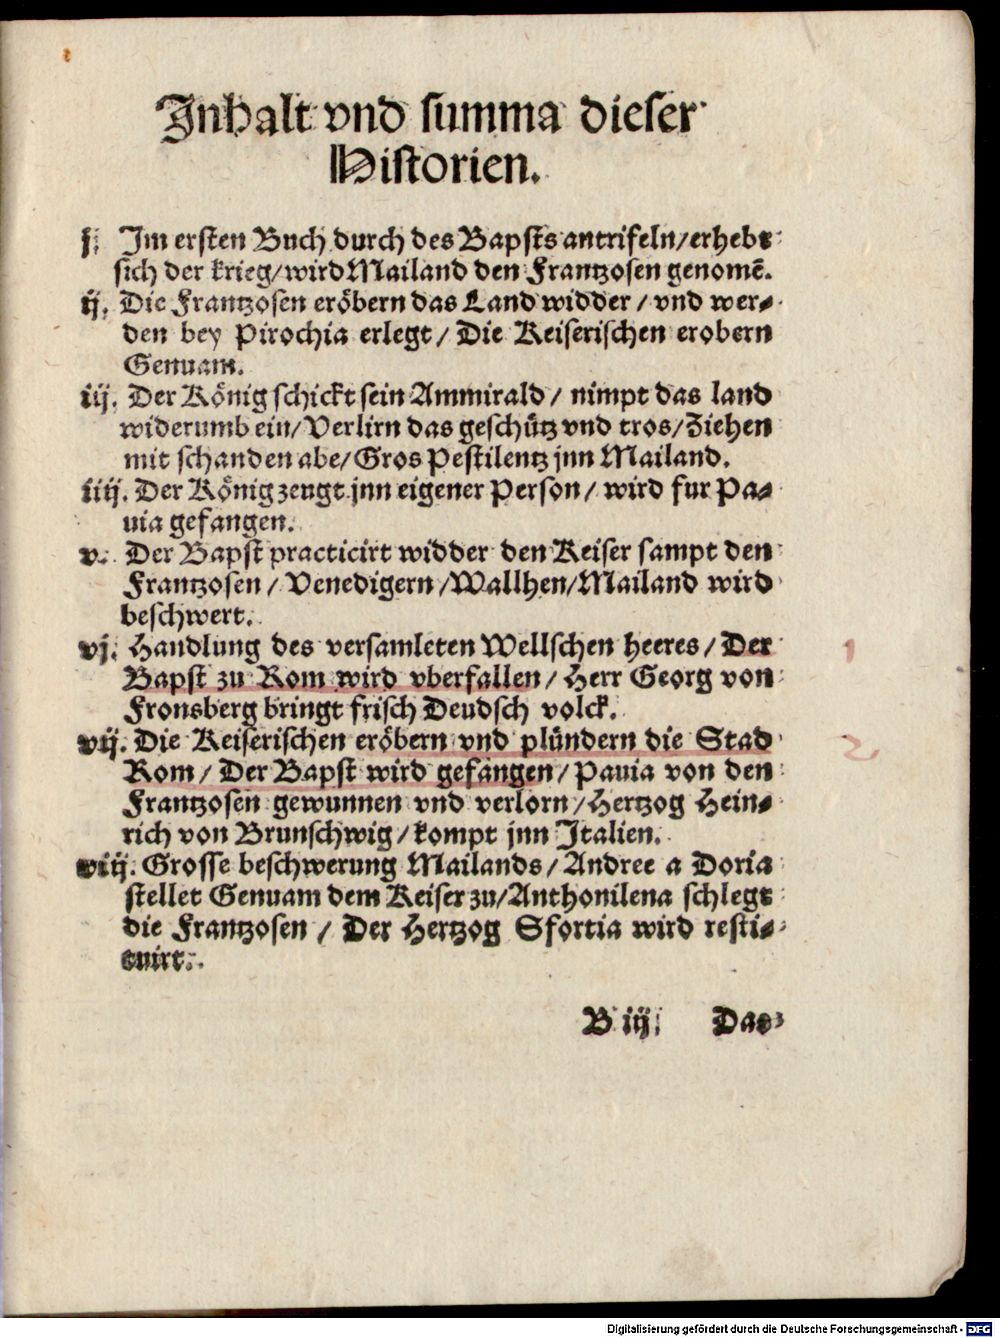 Inhalt vnd summa dieser
Historien.
j. Im ersten Buch durch des Bapsts antrifeln/erhebt
sich der krieg/wird Mailand den Frantzosen genomē.
ij. Die Frantzosen eröbern das Land widder/vnd wer-
den bey Pirochia erlegt/Die Keiserischen erobern
Genuam.
iij. Der König schickt sein Ammirald/nimpt das land
widerumb ein/Verlirn das geschütz vnd tros/Ziehen
mit schanden abe/Gros Pestilentz jnn Mailand.
iiij. Der König zeugt jnn eigener Person/wird fur Pa-
uia gefangen.
v. Der Bapst practicirt widder den Keiser sampt den
Frantzosen/Venedigern/Wallhen/Mailand wird
beschwert.
vj. Handlung des versamleten Wellschen heeres/Der
Bapst zu Rom wird vberfallen/Herr Georg von
Fronsberg bringt frisch Deudsch volck.
vij. Die Keiserischen eröbern vnd plündern die Stad
Rom/Der Bapst wird gefangen/Pauia von den
Frantzosen gewunnen vnd verlorn/Hertzog Hein-
rich von Brunschwig/kompt jnn Italien.
viij. Grosse beschwerung Mailands/Andree a Doria
stellet Genuam dem Keiser zu/Anthonilena schlegt
die Frantzosen/Der Hertzog Sfortia wird resti-
tuirt.
B iij. Das
1
2
Digitalisierung gefördert durch die Deutsche Forschungsgemeinschaft - DFG